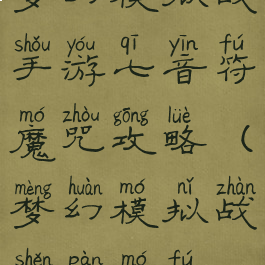 梦幻模拟战
shǒu yóu qī yīn fú
手游七音符
mó zhòu gōng lüè
魔咒攻略（
mèng huàn mó nǐ zhàn
梦幻模拟战
shěn pàn mó fú